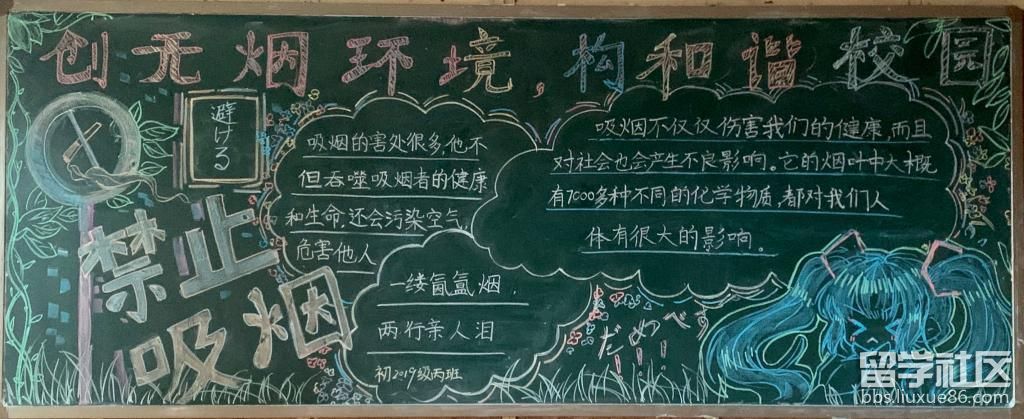 创无烟环境,构和谐校园
避ける
禁止
吸烟
吸烟的害处很多,他不
但吞噬吸烟者的健康
和生命,还会污染空气
危害他人
一缕氤氲烟,
两行亲人泪
初2019级丙班
吸烟不仅仅伤害我们的健康,而且
对社会也会产生不良影响。它的烟叶中大概
有7000多种不同的化学物质,都对我们人
体有很大的影响。
留学社区
bbs.liuxue86.com